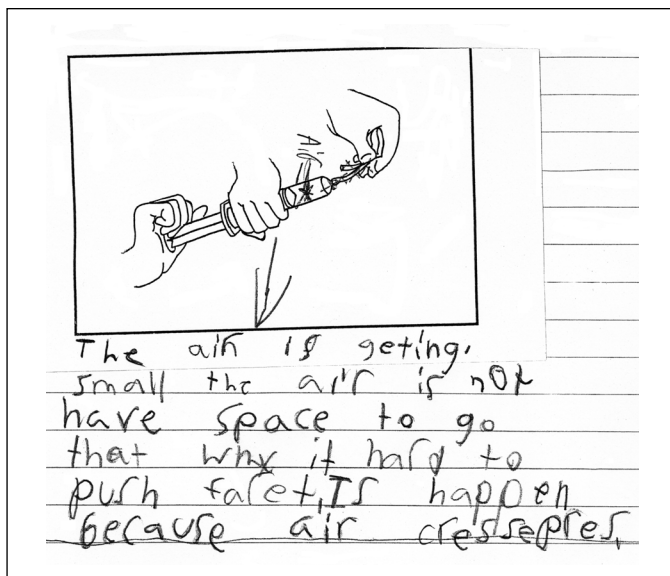 Air
The air is geting.
small the air is not
have space to go
that why it hard to
push falet, Is happen
because air cressepres.